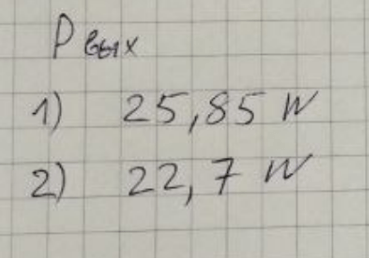 Pвых
1) 25,85 W
2) 22,7 W